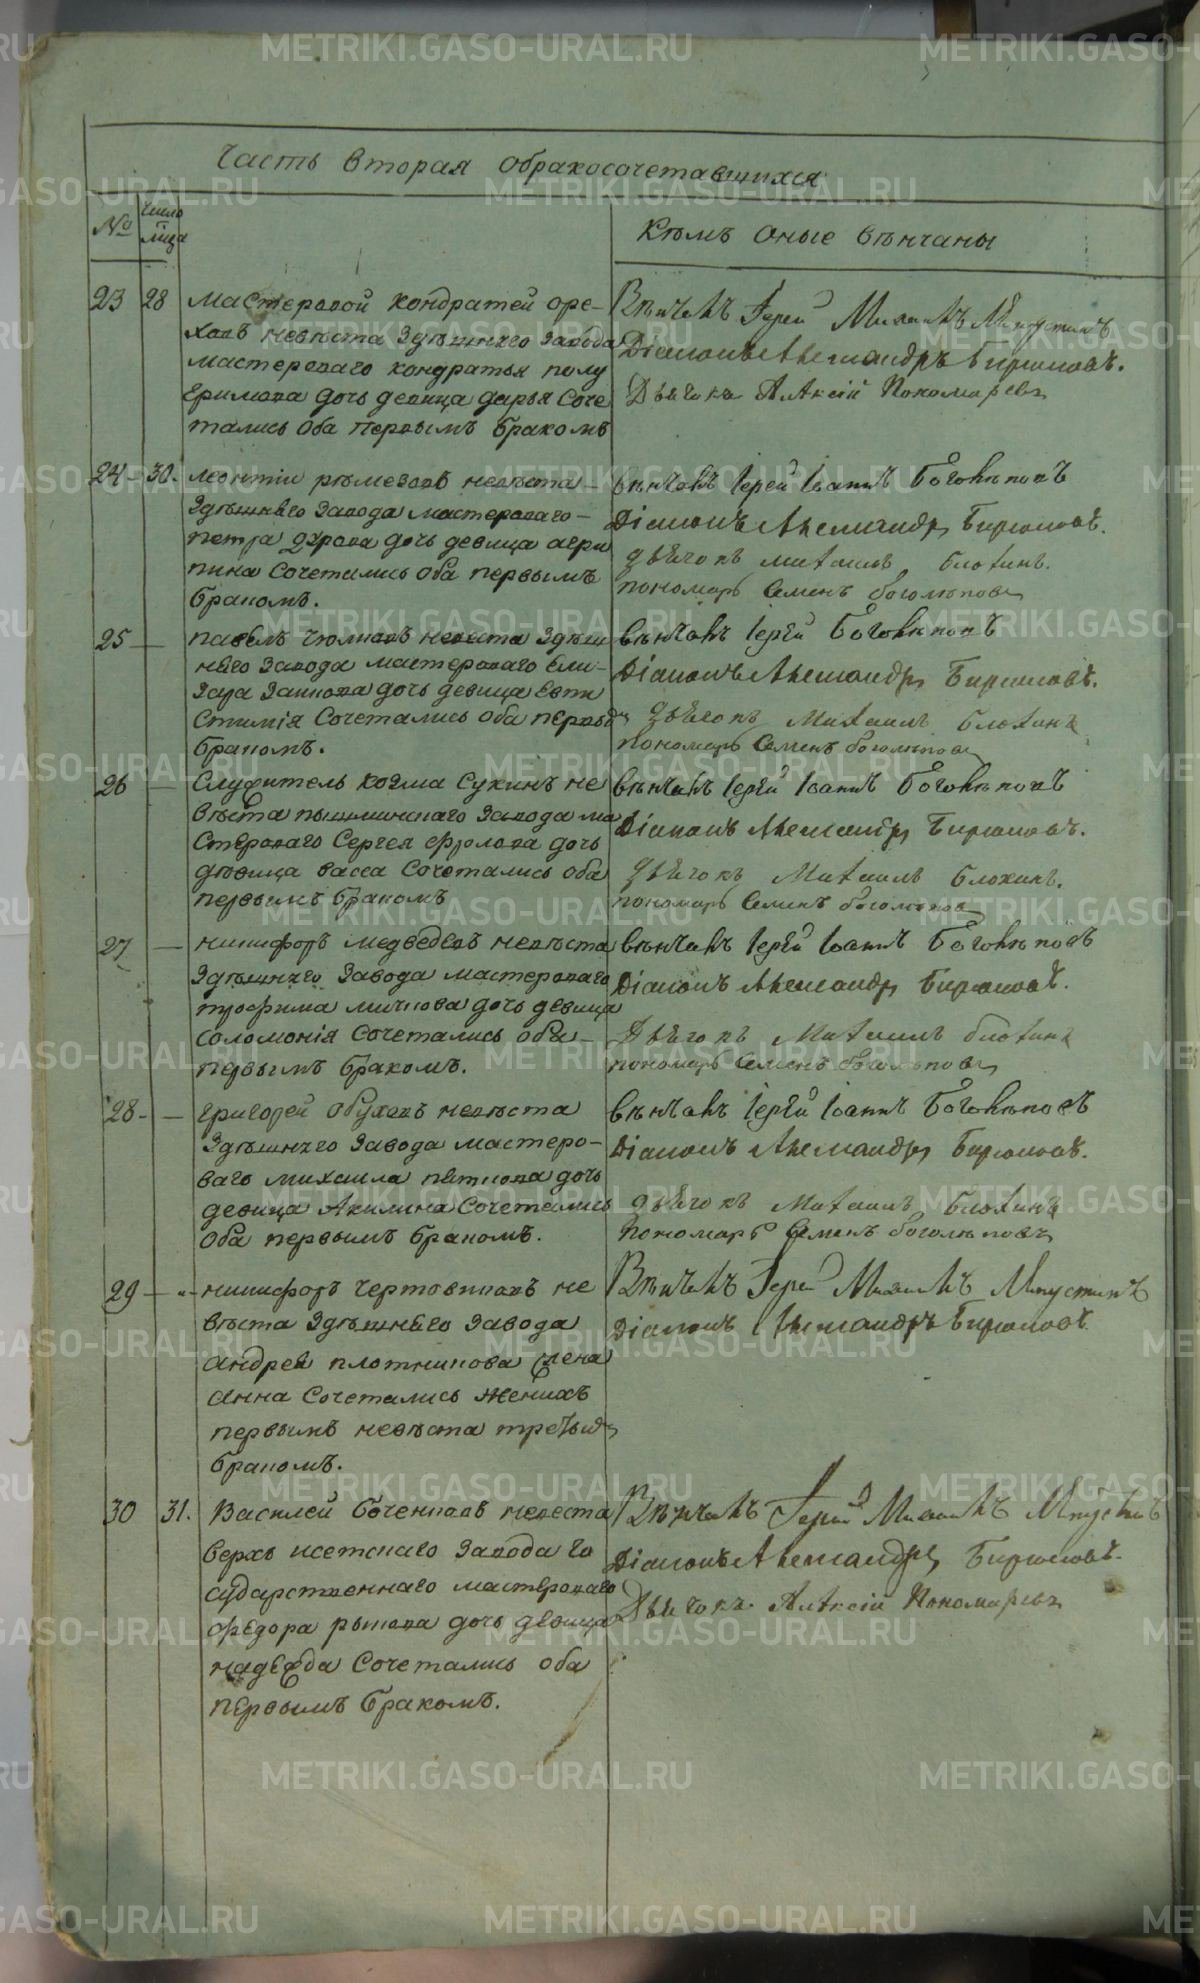 Часть вторая обракосочетавшихся
№
число
мца
Кѣмъ оные вѣнчаны
23 28 мастеровой кондратей оре-
ховъ невѣста здѣшнѣго завода
мастероваго кондратья полу
ехримова дочь девица дарья соче
тались оба первымъ бракомъ
Вѣнчалъ Іерей Михаилъ
Діаконъ Александръ Бирюковъ.
Дьячокъ Алексій Пономаревъ
24 30. леонтіи ремезовъ невѣста
здѣшнѣго завода мастероваго
петра дочь девица агри
пина сочетались оба первымъ
бракомъ.
вѣнчалъ Іерей Іоаннъ Боголѣповъ
Діаконъ Александръ Бирюковъ.
дьячокъ михаилъ блохинъ.
пономарь Семенъ боголѣповъ
25 павелъ невеста здѣш
нѣго завода мастероваго ели
зара дочь девица евти
Сочетались оба первымъ
бракомъ.
вѣнчалъ Іерей Боголѣповъ
Діаконъ Александръ Бирюковъ.
дьячокъ Михаилъ блохинъ
пономарь Семенъ боголѣповъ
26 служитель козма сукинъ не
вѣста пышминскаго завода ма
стероваго Сергея фролова дочь
девица васса Сочетались оба
первымъ бракомъ
вѣнчалъ Іерей Іоаннъ Боголѣповъ
Діаконъ Александръ Бирюковъ.
дьячокъ Михаилъ блохинъ.
пономарь Семенъ боголѣповъ
27 никифоръ медведевъ невѣста
здѣшнѣго завода мастероваго
трофима дочь девица
соломонія Сочетались оба
первымъ бракомъ.
вѣнчалъ Іерей Іоаннъ Боголѣповъ
Діаконъ Александръ Бирюковъ.
Дьячокъ Михаилъ блохинъ
пономарь Семенъ боголѣповъ
28 григорей обуховъ невѣста
здѣшнѣго завода мастеро-
ваго михаила пѣткова дочь
девица Акилина Сочетались
оба первымъ бракомъ.
вѣнчалъ Іерей Іоаннъ Боголѣповъ
Діаконъ Александръ Бирюковъ.
дьячокъ Михаилъ блохинъ
пономарь Семенъ боголѣповъ
29 никифоръ чертовиковъ не
вѣста здѣшнѣго завода
андрея плотникова жена
анна Сочетались женихъ
первымъ невѣста третьимъ
бракомъ.
Вѣнчалъ Іерей Михаилъ
Діаконъ Александръ Бирюковъ
30 31. Василей боченковъ невеста
верхъ исетскаго завода го
сударственнаго мастероваго
федора рыкова дочь девица
надежда Сочетались оба
первымъ бракомъ.
Вѣнчалъ Іерей Михаилъ
Діаконъ Александръ Бирюковъ.
Дьячокъ Алексій Пономаревъ
METRIKI.GASO-URAL.RU